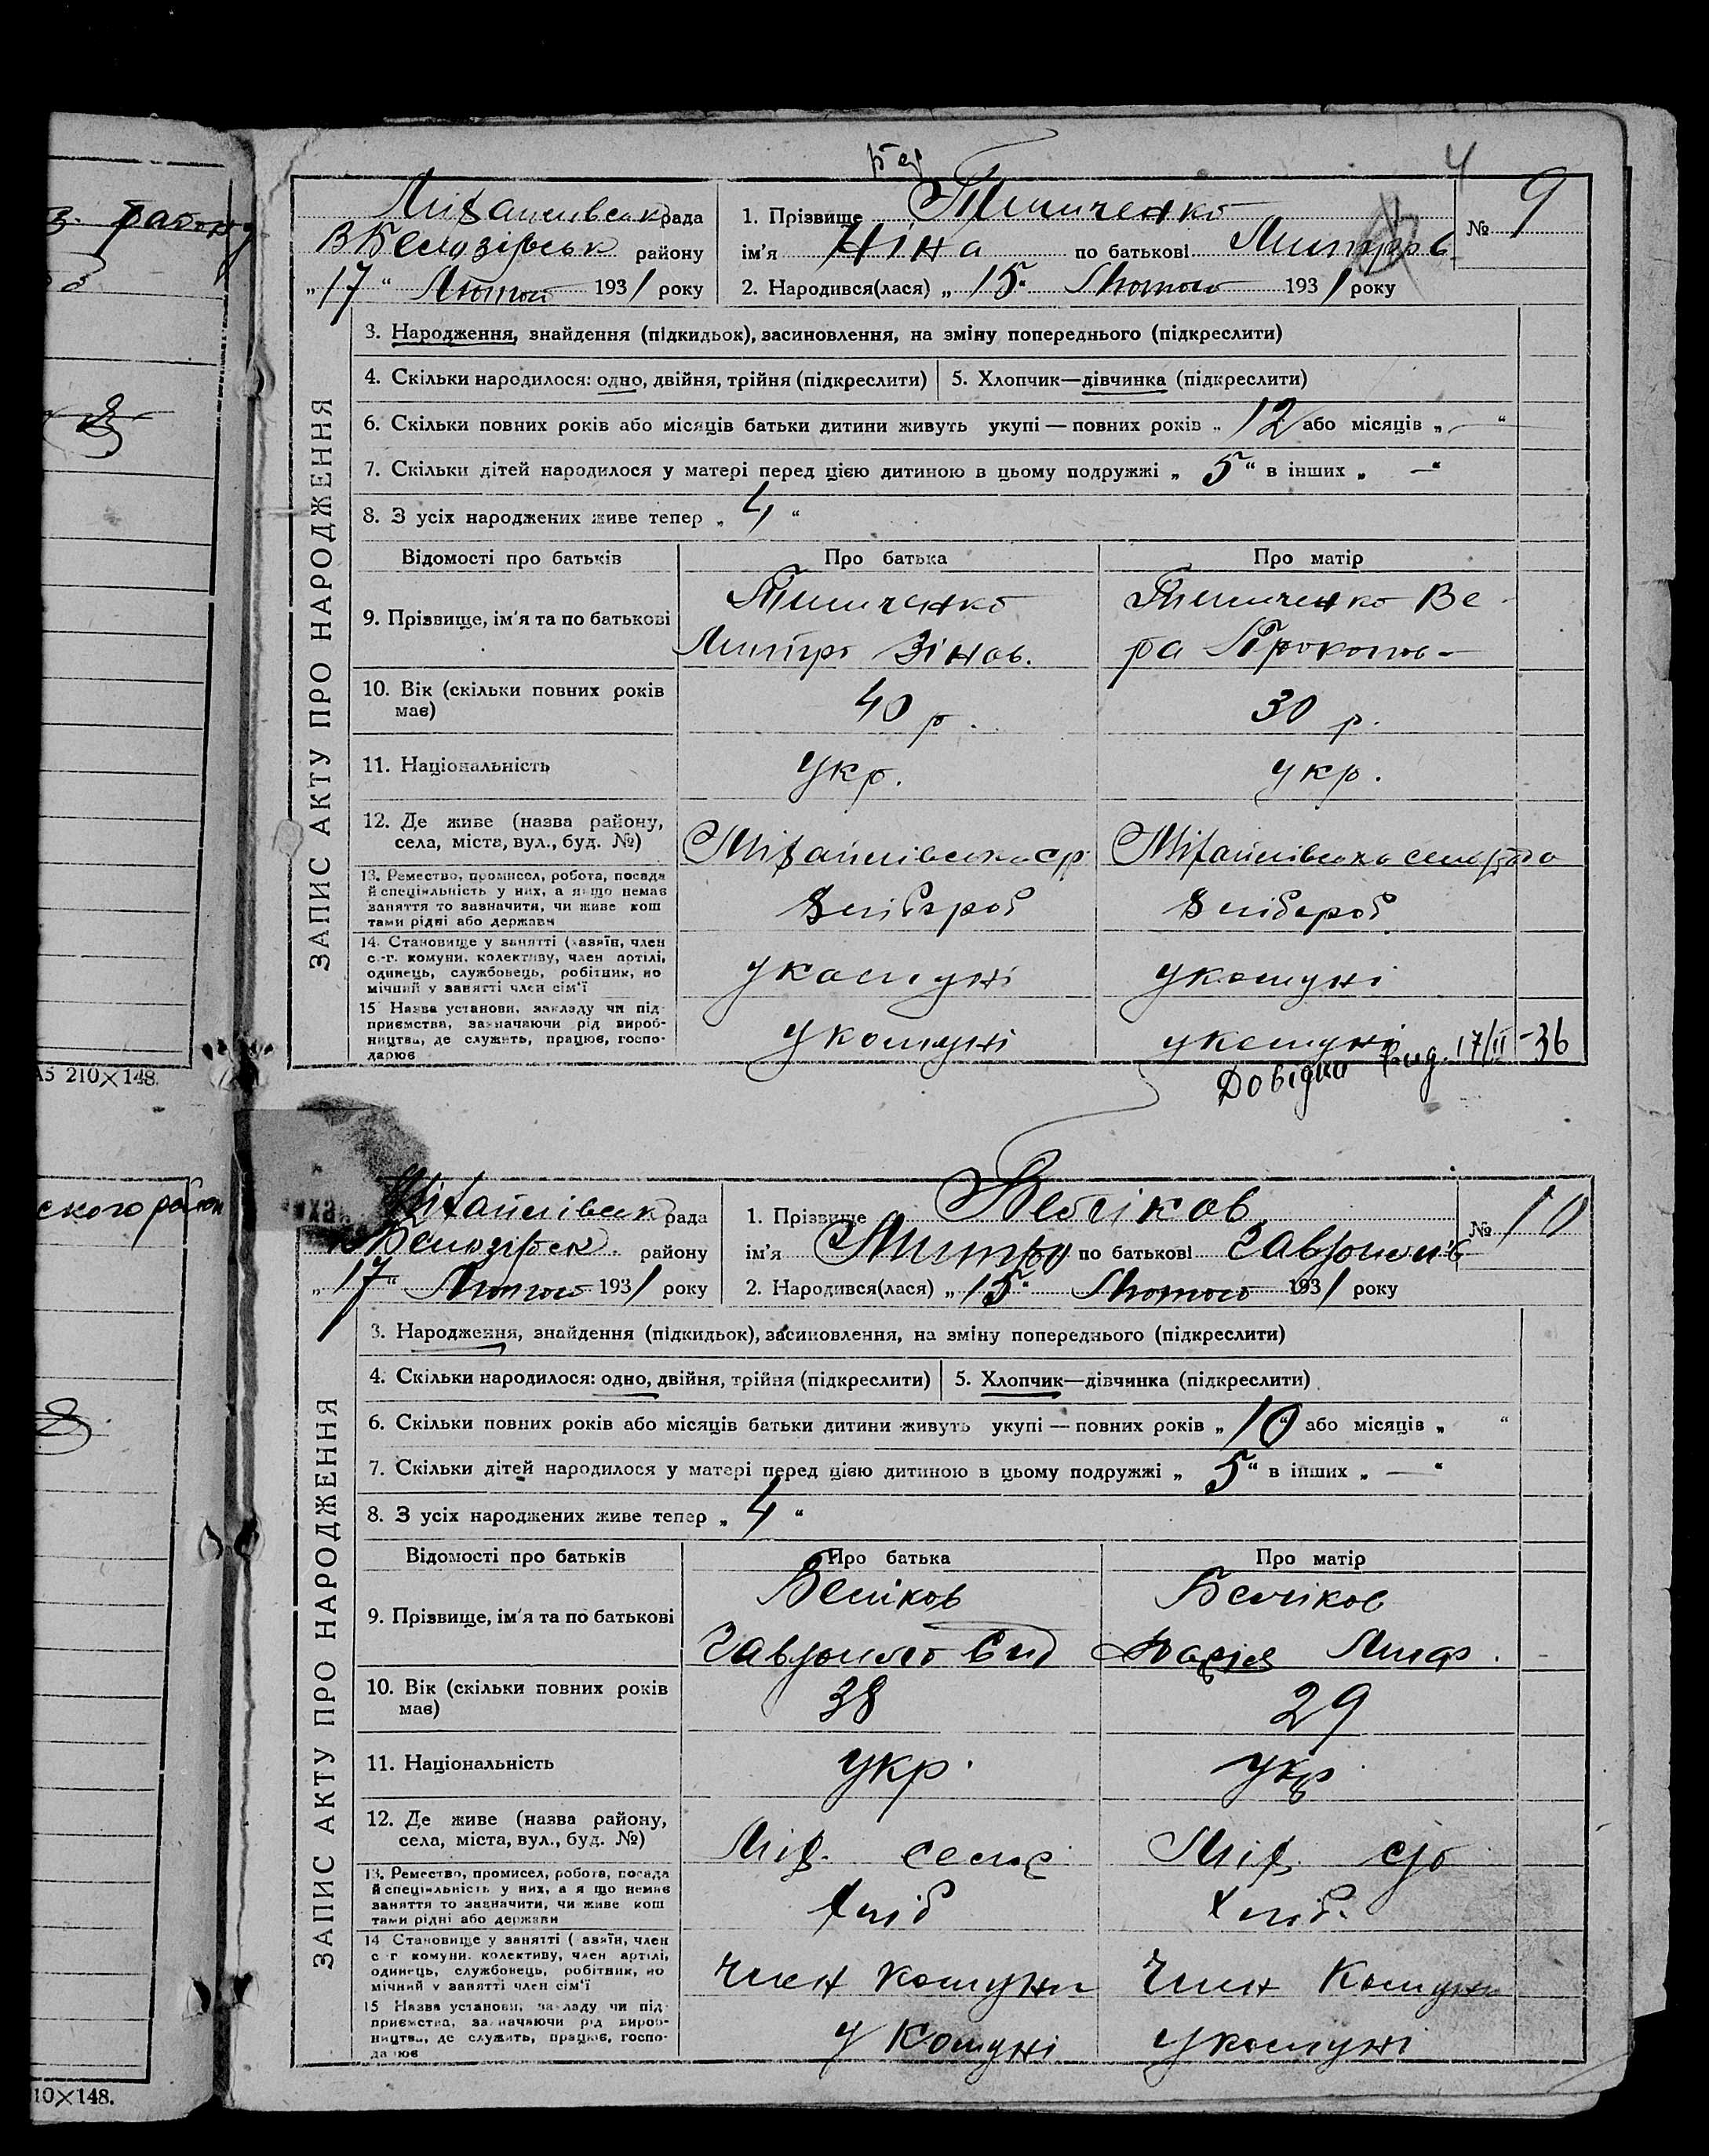 4
Михайлівськ рада
В Белозірськ району
„17“ Лютого 1931 року
1. Прізвище Тимченко
ім'я Ніна по батькові Дмитрів
№ 9
2. Народився(лася) „15“ Лютого 1931 року
ЗАПИС АКТУ ПРО НАРОДЖЕННЯ
3. Народження, знайдення (підкидьок), засиновлення, на зміну попереднього (підкреслити)
4. Скільки народилося: одно, двійня, трійня (підкреслити) 5. Хлопчик—дівчинка (підкреслити)
6. Скільки повних років або місяців батьки дитини живуть укупі — повних років „12 або місяців „—“
7. Скільки дітей народилося у матері перед цією дитиною в цьому подружжі „5“ в інших „—“
8. З усіх народжених живе тепер „4“
Відомості про батьків Про батька Про матір
9. Прізвище, ім'я та по батькові
Тимченко
Дмитро Зінов.
Тимченко Ве-
ра Проков-
10. Вік (скільки повних років має)
40 р. 30 р.
11. Національність укр. укр.
12. Де живе (назва району, села, міста, вул., буд. №)
Міхайлівська ср. Міхайлівська
13. Ремество, промисел, робота, посада й спеціяльність у них, а якщо немає заняття то зазначити, чи живе коштами рідні або держави
Хлібороб Хлібороб
14. Становище у занятті (хазяїн, член с.-г. комуни, колективу, член артілі, одинець, службовець, робітник, помічний у занятті член сім'ї
у комуні у комуні
15 Назва установи, закладу чи підприємства, зазначаючи рід виробництва, де служить, працює, господарює
у комуні у комуні
Довідки вид. 17/II-36
Міхайлівськ рада
Белозірск району
„17“ Лютого 1931 року
1. Прізвище Веліков
ім'я Дмитро по батькові Гаврилів
№ 10
2. Народився(лася) „15“ Лютого 1931 року
ЗАПИС АКТУ ПРО НАРОДЖЕННЯ
3. Народження, знайдення (підкидьок), засиновлення, на зміну попереднього (підкреслити)
4. Скільки народилося: одно, двійня, трійня (підкреслити) 5. Хлопчик—дівчинка (підкреслити)
6. Скільки повних років або місяців батьки дитини живуть укупі — повних років „10“ або місяців „ “
7. Скільки дітей народилося у матері перед цією дитиною в цьому подружжі „5“ в інших „—“
8. З усіх народжених живе тепер „4“
Відомості про батьків Про батька Про матір
9. Прізвище, ім'я та по батькові
Веліков
Гаврило
Веліков
Дарія
10. Вік (скільки повних років має)
38 29
11. Національність укр. укр.
12. Де живе (назва району, села, міста, вул., буд. №)
Міх. Міх.
13. Ремество, промисел, робота, посада й спеціяльність у них, а якщо немає заняття то зазначити, чи живе коштами рідні або держави
Хліб Хліб.
14 Становище у занятті (хазяїн, член с.-г. комуни, колективу, член артілі, одинець, службовець, робітник, помічний у занятті член сім'ї
Член комуни Член Комуни
15 Назва установи, закладу чи підприємства, зазначаючи рід виробництва, де служить, працює, господарює
у Комуні у комуні
А5 210×148.
10×148.